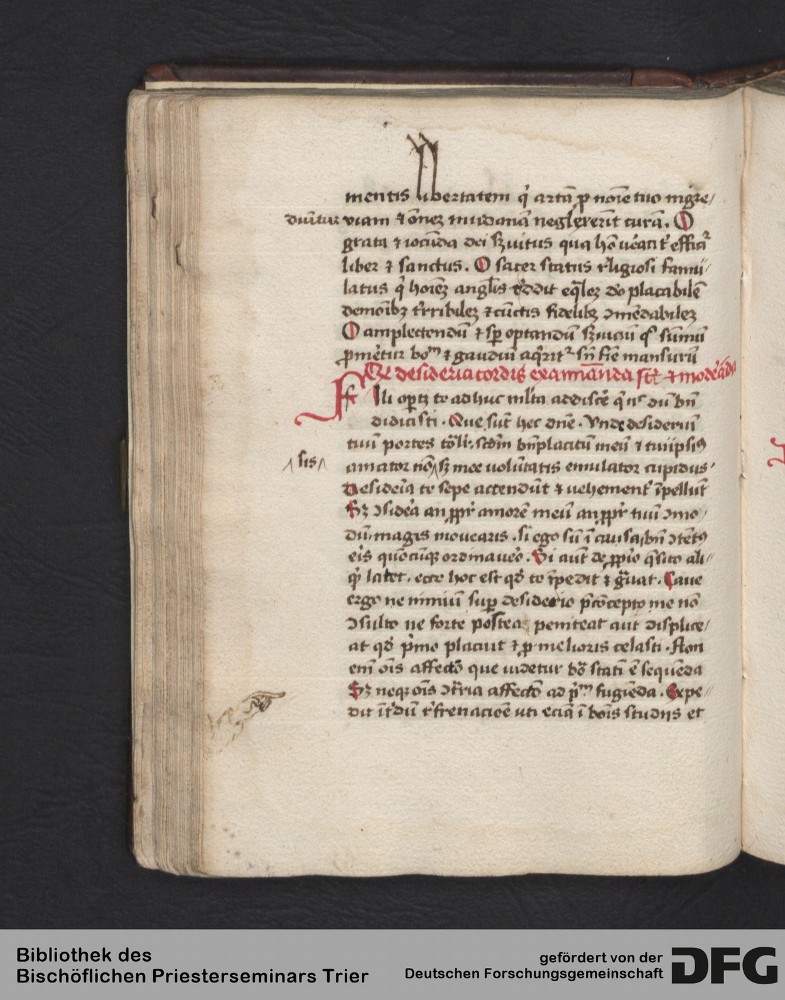 mentis libertatem q artā p noīe tuo ingre/
duītur viam & oēm mūdanā neglexerīt curā. O
grata & iocūda dei s̄uitus qua hō ueracit᷒ efficit᷒
liber & sanctus. O sacer status religiosi famu-
latus q hoīem anglis reddit eqlem deo placabilē
demonibȝ terribilem & cūctis fidelibȝ cōmēdabilem
O amplectendū & sp optandū s̄uiciū q sūmū
pmeretur bonū & gaudiū aqrit᷒ sn fine mansurū
Qe desideria cordis examinanda sūt & moderāda
Fili oportȝ te adhuc mlta addiscere q nō dū bn
didicisti. Que sūt hec dn̄e. Vnde desideriū
tuū portes totalit᷒ scdm bn̄placitū meū & tui ipsiꝰ
sis
amator nō sȝ mee volūtatis emulator cupidus.
desideria te sepe accendūt & vehement᷒ īpellūt
Sȝ cōsidera an ppt᷒ amorē meū an ppt᷒ tuū cōmo-
dū magis movearis. si ego sū ī causa bn cōtētꝰ
eris quōcūqȝ ordinavero. Si aut de pprio qsito ali-
qd latet. ecce hoc est qd te īpedit & grauat. Cave
ergo ne nimiū sup desiderio pcōcepto me nō
cōsulto ne forte postea peniteat aut displice/
at qd pmo placuit & p meliori zelasti. Non
enī oīs affectio que videtur bōa statī ē sequēda
Sȝ neqȝ oīs cōtraria affectio ad pmū fugienda. Expe-
dit īterdū refrenacione uti eciā ī bonis studiis et
Bibliothek des
Bischöflichen Priesterseminars Trier
gefördert von der
Deutschen Forschungsgemeinschaft
DFG